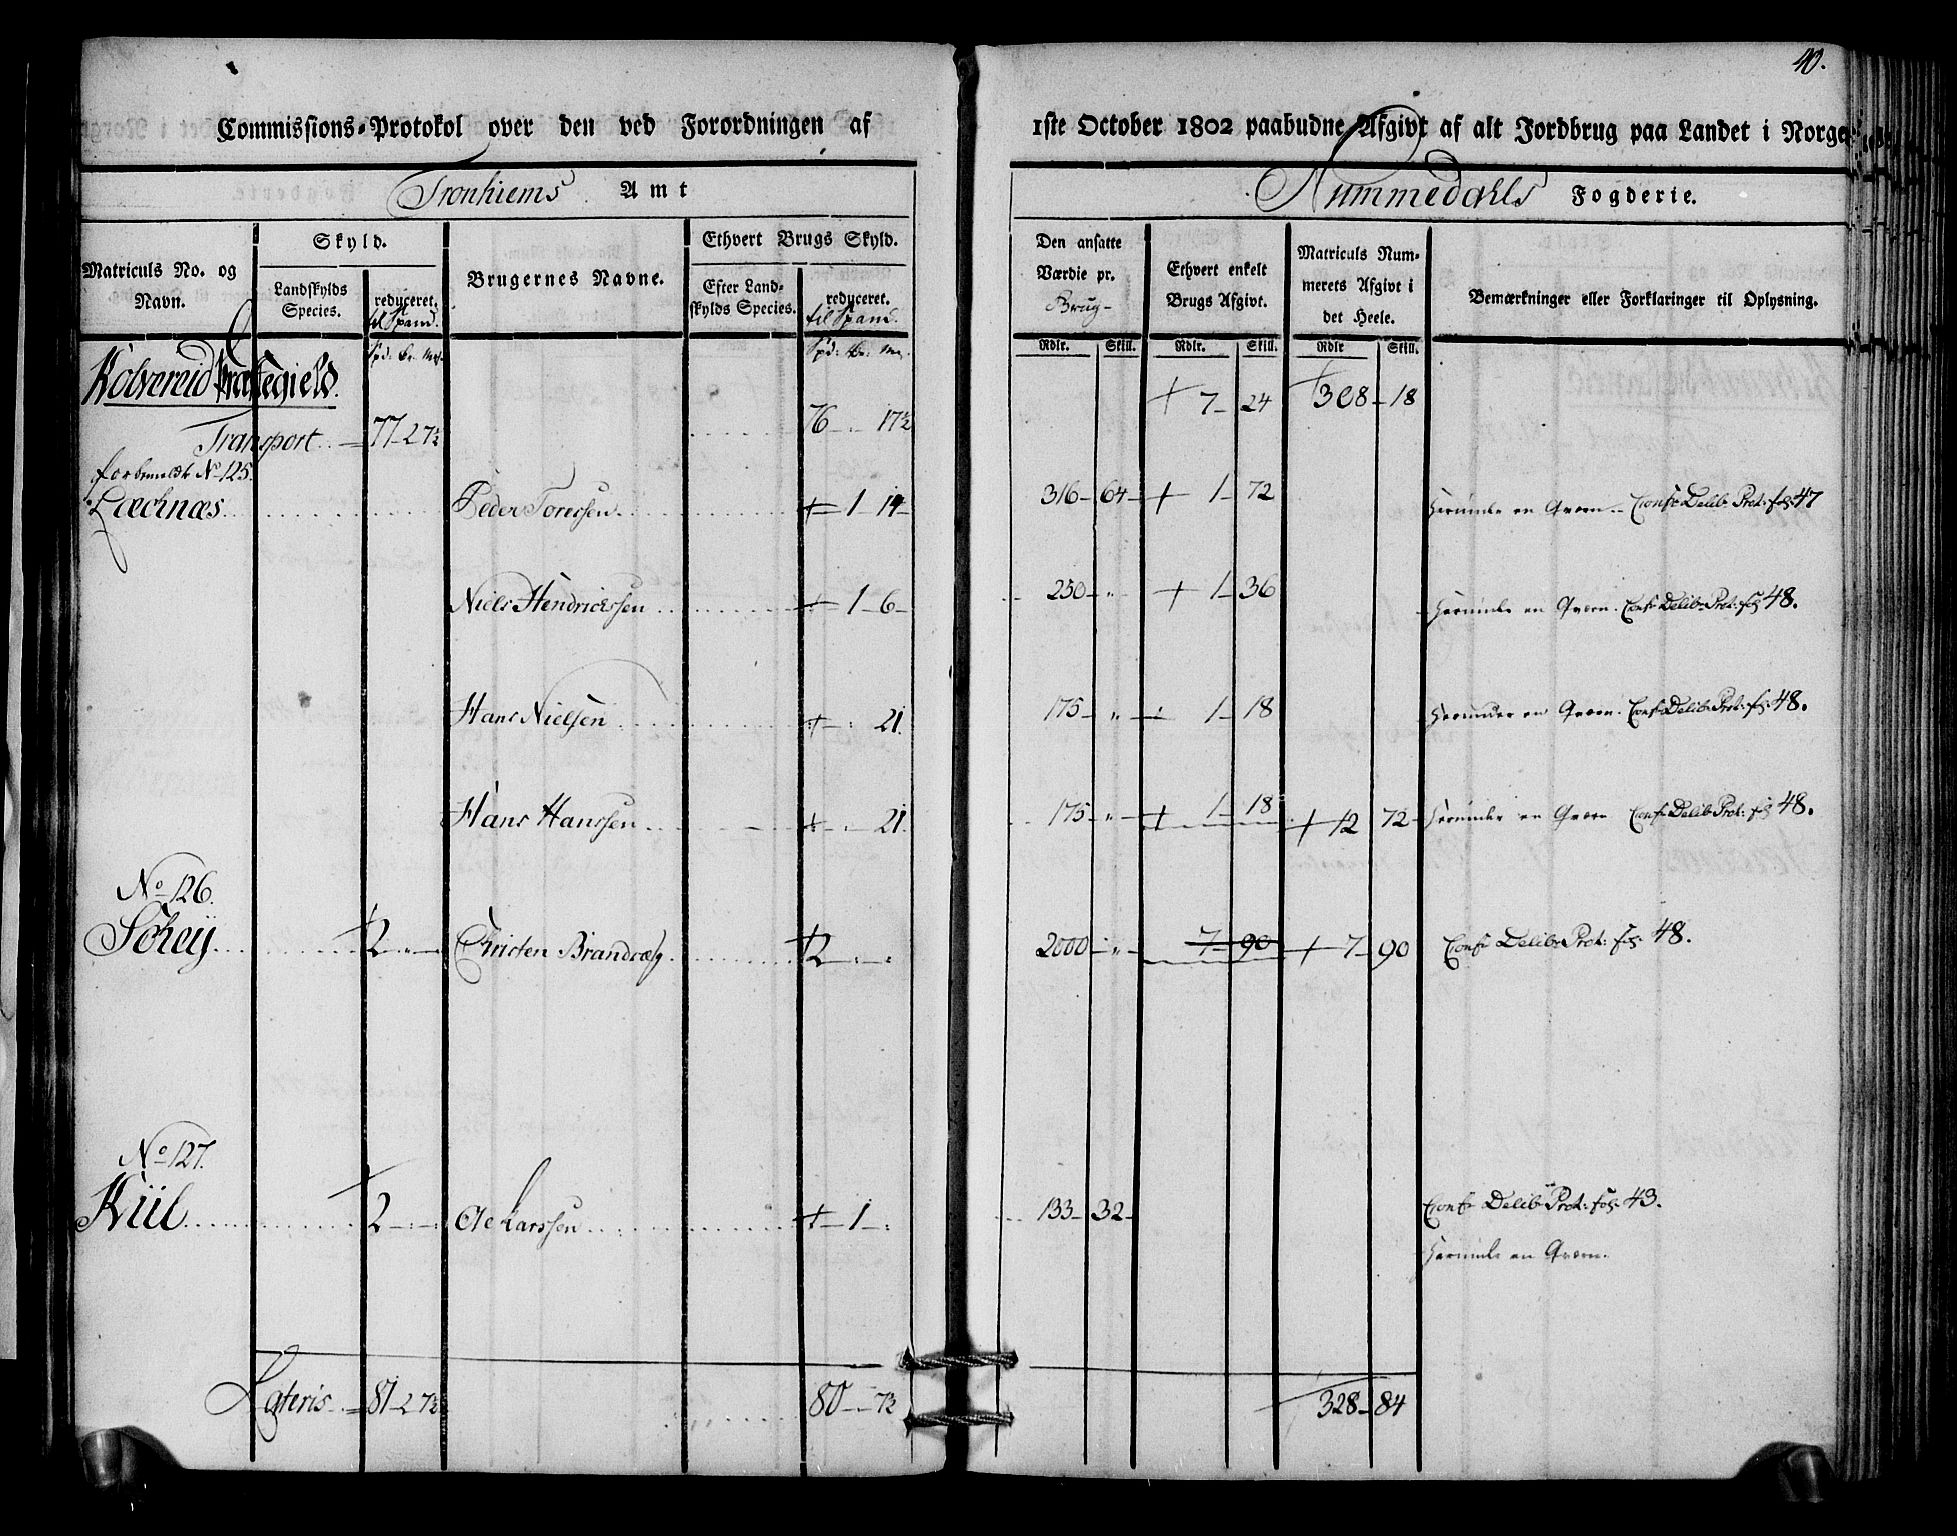 40.
Commissions-Protokol over den ved Forordningen af 1ste October 1802 paabudne Afgivt af alt Jordbrug paa Landet i Norge
Tronhiems Amt
Nummedahls Fogderie.
Matriculs No. og Navn.
Skyld.
Landskylds Species.
reduceret. til Spand.
Brugernes Navne.
Ethvert Brugs Skyld.
Efter Landskylds Species.
reduceret. til Spand.
Den ansatte Værdie pr. Brug-
Ethvert enkelt Brugs Afgivt.
Matriculs Nummerets Afgivt i det Heele.
Bemærkninger eller Forklaringer til Oplysning.
Rdlr. Skill. Rdlr. Skill. Rdlr Skill.
Kolvereid Præstegield.
7 24 308 18
Transport 77 2 7½ 76 17½
forbemeldte No 125.
Lechnæs Peder Torersen 1 14 316 64 1 72 Herunder en Qværn Confr Delib: Prot: fol: 47
Niels Hendricksen 1 6 250 1 36 Herunder en Qværn. Confr Delib: Prot: fol: 48.
Hans Nielsen 21. 175 1 18 Herunder en Qværn. Confr Delib: Prot: fol: 48.
Hans Hanssen 21. 175 1 18 12 72 Herunder en Qværn Confr Delib: Prot: fol: 48.
No 126.
Söhey 2 Christen Brandtzæg 2 2000 7 90 7 90 Confr Delib: Prot: fol: 48.
No 127.
Kiil 2 Ole Larssen 1 133 32 Confr Delib: Prot: fol: 43.
Herunder en Qværn.
Lateris 81 2 7½ 80 7½ 328 84